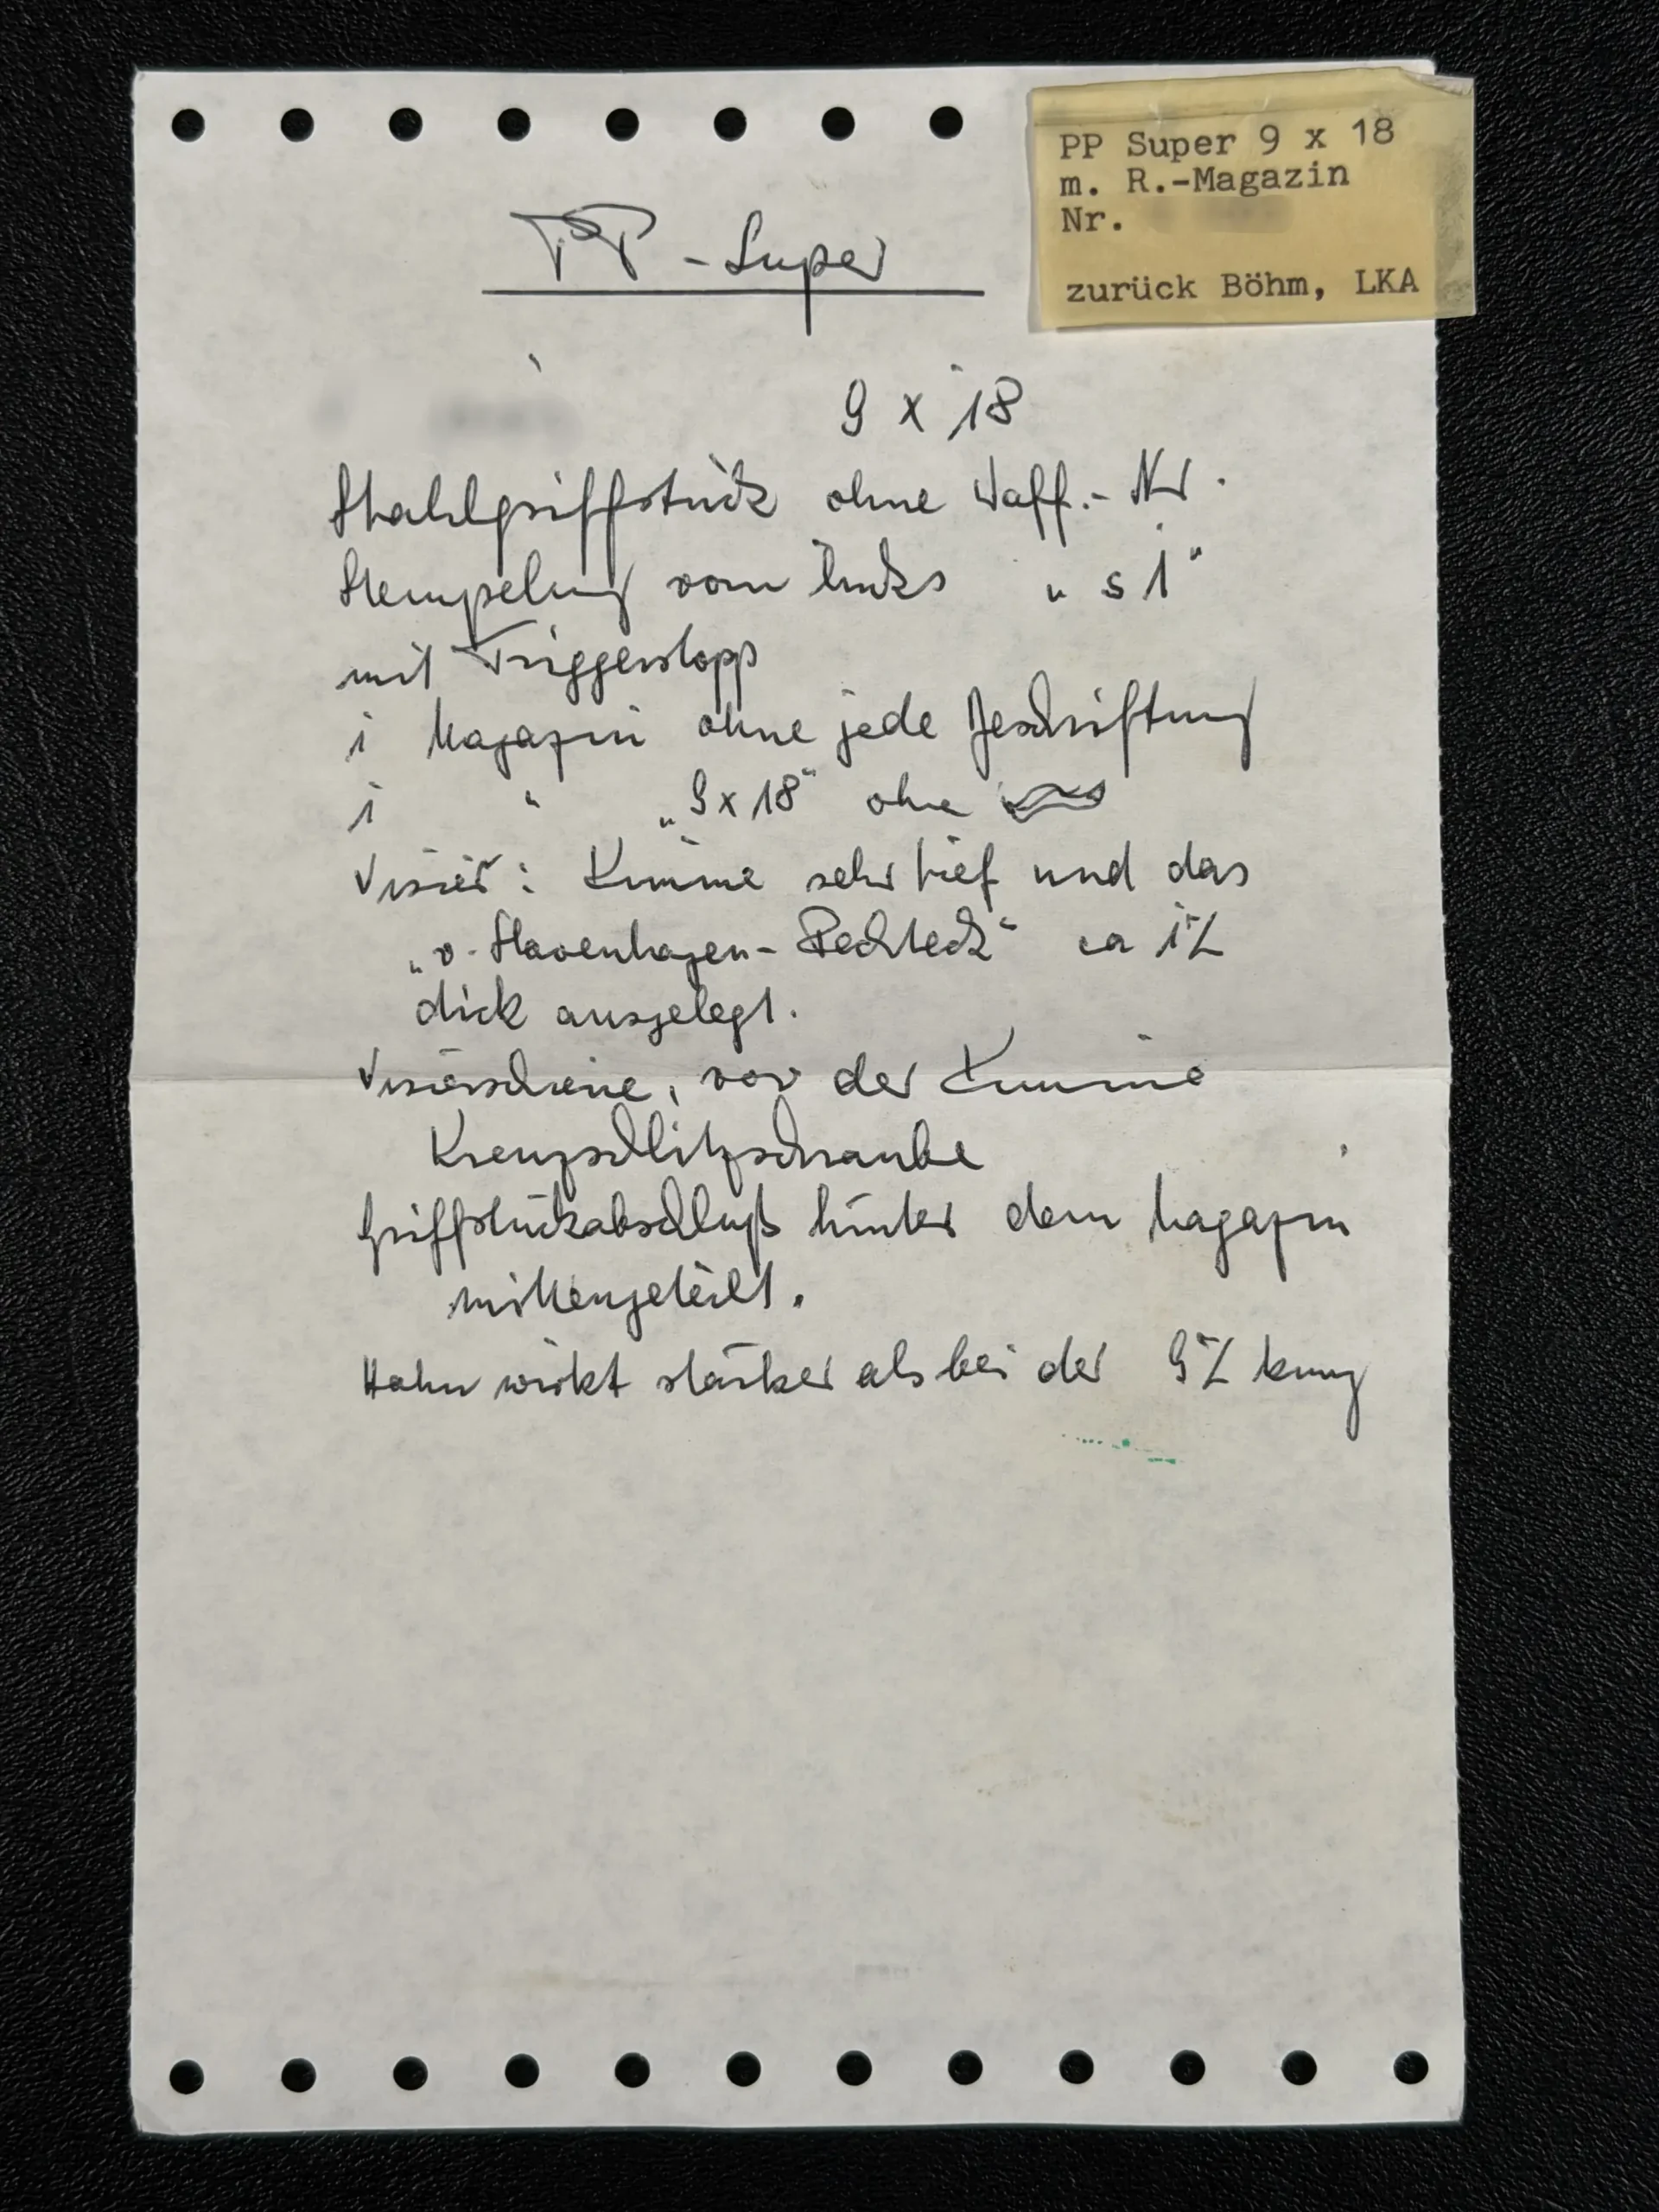 PP Super 9 x 18
m. R.-Magazin
Nr.
zurück Böhm, LKA
PP - Super
9 x 18
Stahlgriffstück ohne Waff.- Nr.
Stempelung vorn links „ s 1 “
mit Triggerstopp
1 Magazin ohne jede Beschriftung
1 " „9x18“ ohne
Visier: Kimme sehr tief und das
„v. Stavenhagen-Rechteck“ ca
dick ausgelegt.
Visierschiene, vor der Kimme
Kreuzschlitzschraube
Griffstückabschluß hinter dem Magazin
mittengeteilt.
Hahn wirkt stärker als bei der kurz